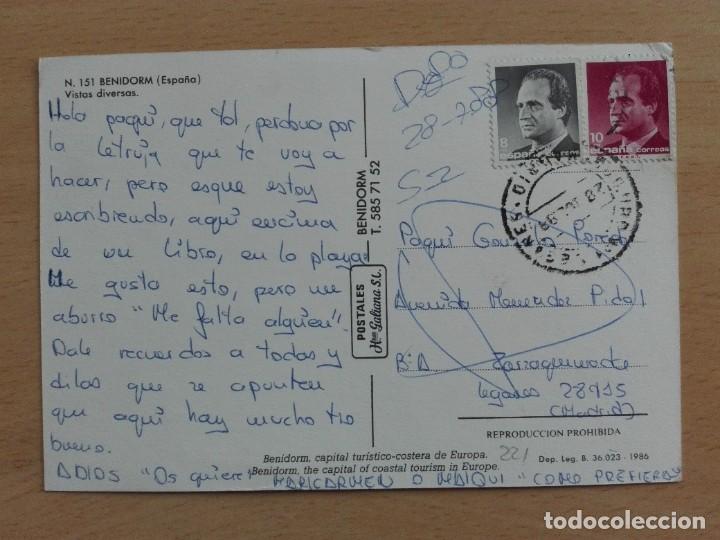 N. 151 BENIDORM (España)
Vistas diversas.
Hola paqui, que tal, perdona por
la letruja que te voy a
hacer, pero esque estoy
escribiendo, aqui encima
de un libro, en la playa
Me gusta esto, pero me
aburro "Me falta alguien".
Dale recuerdos a todas y
dilas que se apunten
que aqui hay mucho tio
bueno.
ADIOS "Os quiere" MARICARMEN O MAIQUI "COMO PREFIERAS"
BENIDORM
T. 585 71 52
POSTALES
Hnos Galiana S.L.
28-7-88
8
España
correos
10
España correos
Paqui
Avenida Menendez Pidal
Bº A Zarzaquemada
Leganes 28915
(Madrid)
REPRODUCCION PROHIBIDA
Benidorm, capital turístico-costera de Europa.
Benidorm, the capital of coastal tourism in Europe.
221
Dep. Leg. B. 36.023 - 1986
todocoleccion
todocoleccion.net